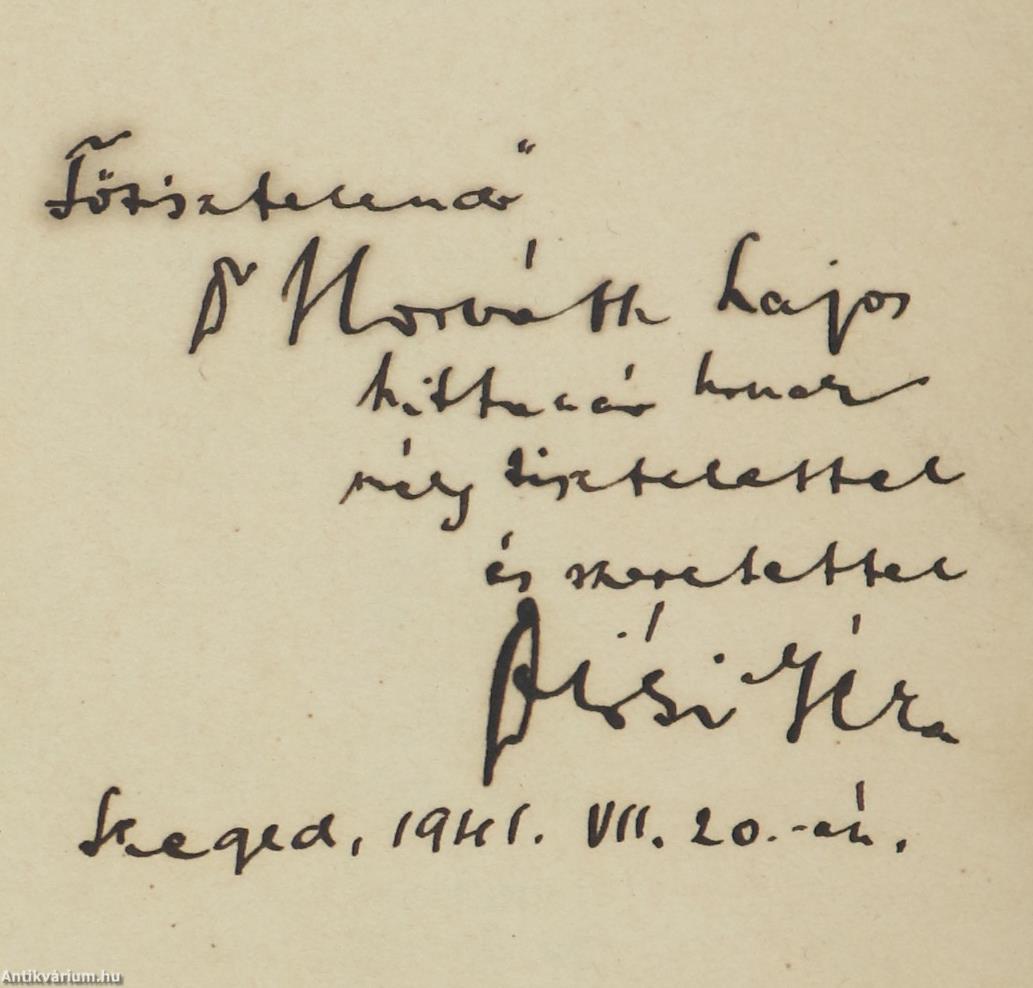 Főtisztelendő
Dr Horváth Lajos
hittanár úrnak
mély tisztelettel
és szeretettel
Diósi Géza
Szeged, 1941. VII. 20.-án.
Antikvárium.hu